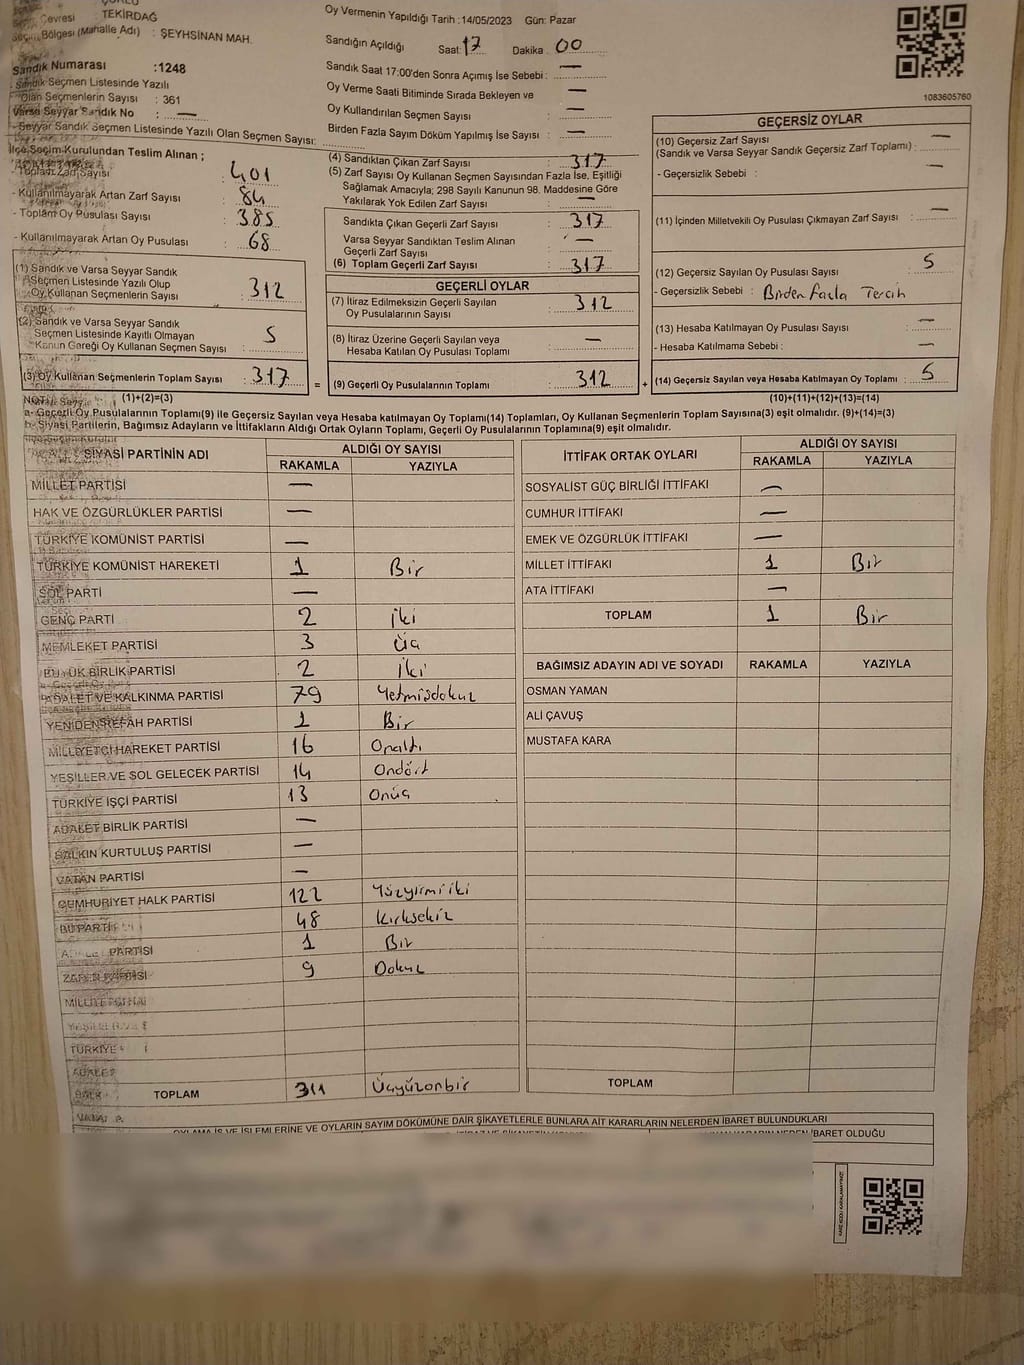 Çevresi TEKİRDAĞ
Seçim Bölgesi (Mahalle Adı) : ŞEYHSİNAN MAH.
Sandık Numarası :1248
Sandık Seçmen Listesinde Yazılı
Olan Seçmenlerin Sayısı : 361
Varsa Seyyar Sandık No : —
Seyyar Sandık Seçmen Listesinde Yazılı Olan Seçmen Sayısı:
Oy Vermenin Yapıldığı Tarih :14/05/2023 Gün: Pazar
Sandığın Açıldığı Saat: 17 Dakika 00
Sandık Saat 17:00'den Sonra Açımış İse Sebebi : —
Oy Verme Saati Bitiminde Sırada Bekleyen ve —
Oy Kullandırılan Seçmen Sayısı
Birden Fazla Sayım Döküm Yapılmış İse Sayısı : —
1083605760
İlçe Seçim Kurulundan Teslim Alınan ;
- Toplam Zarf Sayısı : 401
- Kullanılmayarak Artan Zarf Sayısı : 84
- Toplam Oy Pusulası Sayısı : 385
- Kullanılmayarak Artan Oy Pusulası : 68
(1) Sandık ve Varsa Seyyar Sandık
Seçmen Listesinde Yazılı Olup
Oy Kullanan Seçmenlerin Sayısı : 312
(2) Sandık ve Varsa Seyyar Sandık
Seçmen Listesinde Kayıtlı Olmayan
Kanun Gereği Oy Kullanan Seçmen Sayısı : 5
(3) Oy Kullanan Seçmenlerin Toplam Sayısı : 317
(4) Sandıktan Çıkan Zarf Sayısı : 317
(5) Zarf Sayısı Oy Kullanan Seçmen Sayısından Fazla İse, Eşitliği
Sağlamak Amacıyla; 298 Sayılı Kanunun 98. Maddesine Göre
Yakılarak Yok Edilen Zarf Sayısı : —
Sandıkta Çıkan Geçerli Zarf Sayısı : 317
Varsa Seyyar Sandıktan Teslim Alınan
Geçerli Zarf Sayısı : —
(6) Toplam Geçerli Zarf Sayısı : 317
GEÇERLİ OYLAR
(7) İtiraz Edilmeksizin Geçerli Sayılan : 312
Oy Pusulalarının Sayısı
(8) İtiraz Üzerine Geçerli Sayılan veya : —
Hesaba Katılan Oy Pusulası Toplamı
= (9) Geçerli Oy Pusulalarının Toplamı : 312
GEÇERSİZ OYLAR
(10) Geçersiz Zarf Sayısı —
(Sandık ve Varsa Seyyar Sandık Geçersiz Zarf Toplamı) :
- Geçersizlik Sebebi : —
(11) İçinden Milletvekili Oy Pusulası Çıkmayan Zarf Sayısı : —
(12) Geçersiz Sayılan Oy Pusulası Sayısı : 5
- Geçersizlik Sebebi : Birden Fazla Tercih
(13) Hesaba Katılmayan Oy Pusulası Sayısı : —
- Hesaba Katılmama Sebebi : —
+ (14) Geçersiz Sayılan veya Hesaba Katılmayan Oy Toplamı : 5
NOT: (1)+(2)=(3) (10)+(11)+(12)+(13)=(14)
a- Geçerli Oy Pusulalarının Toplamı(9) ile Geçersiz Sayılan veya Hesaba katılmayan Oy Toplamı(14) Toplamları, Oy Kullanan Seçmenlerin Toplam Sayısına(3) eşit olmalıdır. (9)+(14)=(3)
b- Siyasi Partilerin, Bağımsız Adayların ve İttifakların Aldığı Ortak Oyların Toplamı, Geçerli Oy Pusulalarının Toplamına(9) eşit olmalıdır.
SİYASİ PARTİNİN ADI ALDIĞI OY SAYISI
RAKAMLA YAZIYLA
MİLLET PARTİSİ —
HAK VE ÖZGÜRLÜKLER PARTİSİ —
TÜRKİYE KOMÜNİST PARTİSİ —
TÜRKİYE KOMÜNİST HAREKETİ 1 Bir
SOL PARTİ —
GENÇ PARTİ 2 İki
MEMLEKET PARTİSİ 3 Üç
BÜYÜK BİRLİK PARTİSİ 2 İki
ADALET VE KALKINMA PARTİSİ 79 Yetmişdokuz
YENİDEN REFAH PARTİSİ 1 Bir
MİLLİYETÇİ HAREKET PARTİSİ 16 Onaltı
YEŞİLLER VE SOL GELECEK PARTİSİ 14 Ondört
TÜRKİYE İŞÇİ PARTİSİ 13 Onüç
ADALET BİRLİK PARTİSİ —
HALKIN KURTULUŞ PARTİSİ —
VATAN PARTİSİ —
CUMHURİYET HALK PARTİSİ 122 Yüzyirmiiki
İYİ PARTİ 48 Kırksekiz
ADALET PARTİSİ 1 Bir
ZAFER PARTİSİ 9 Dokuz
TOPLAM 311 Üçyüzonbir
İTTİFAK ORTAK OYLARI ALDIĞI OY SAYISI
RAKAMLA YAZIYLA
SOSYALİST GÜÇ BİRLİĞİ İTTİFAKI —
CUMHUR İTTİFAKI —
EMEK VE ÖZGÜRLÜK İTTİFAKI —
MİLLET İTTİFAKI 1 Bir
ATA İTTİFAKI —
TOPLAM 1 Bir
BAĞIMSIZ ADAYIN ADI VE SOYADI RAKAMLA YAZIYLA
OSMAN YAMAN
ALİ ÇAVUŞ
MUSTAFA KARA
TOPLAM
OYLAMA İŞ VE İŞLEMLERİNE VE OYLARIN SAYIM DÖKÜMÜNE DAİR ŞİKAYETLERLE BUNLARA AİT KARARLARIN NELERDEN İBARET BULUNDUKLARI
İBARET OLDUĞU